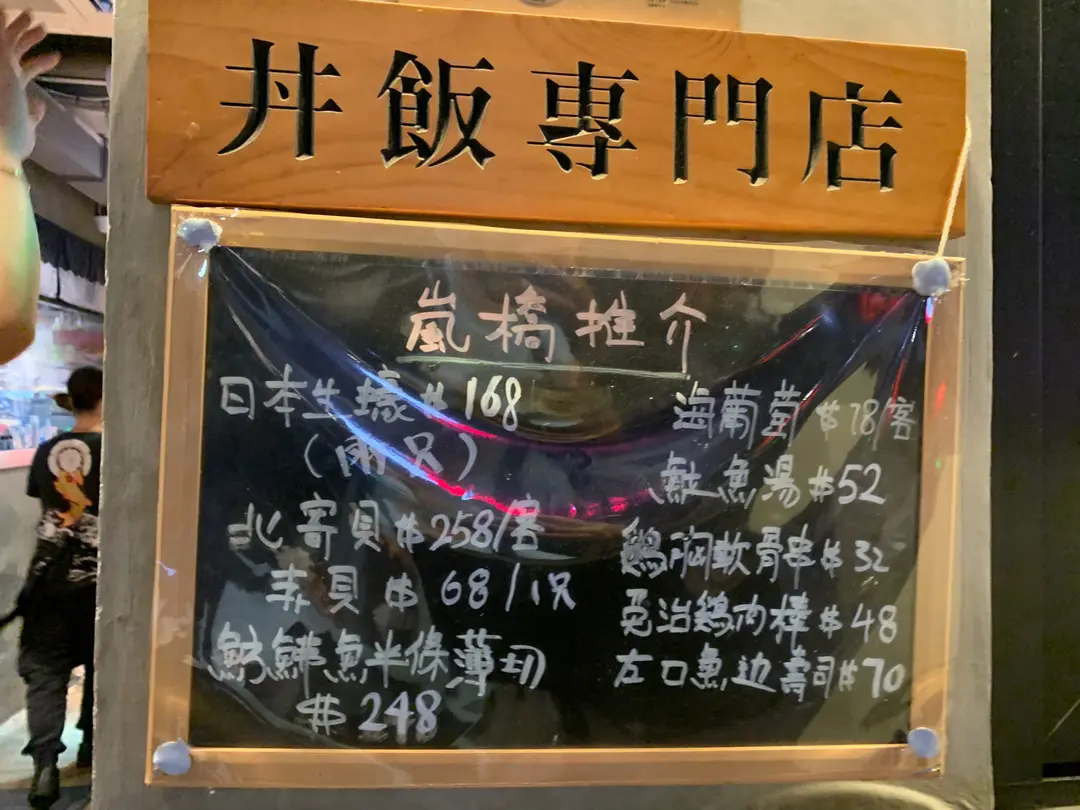 丼飯專門店
嵐橋推介
日本生蠔 $168
(兩只)
北寄貝 $258/客
赤貝 $68/1只
魴鮄魚半條薄切
$248
海葡萄 $78/客
魚湯 $52
鷄胸軟骨串 $32
免治鷄肉棒 $48
左口魚边壽司 $70